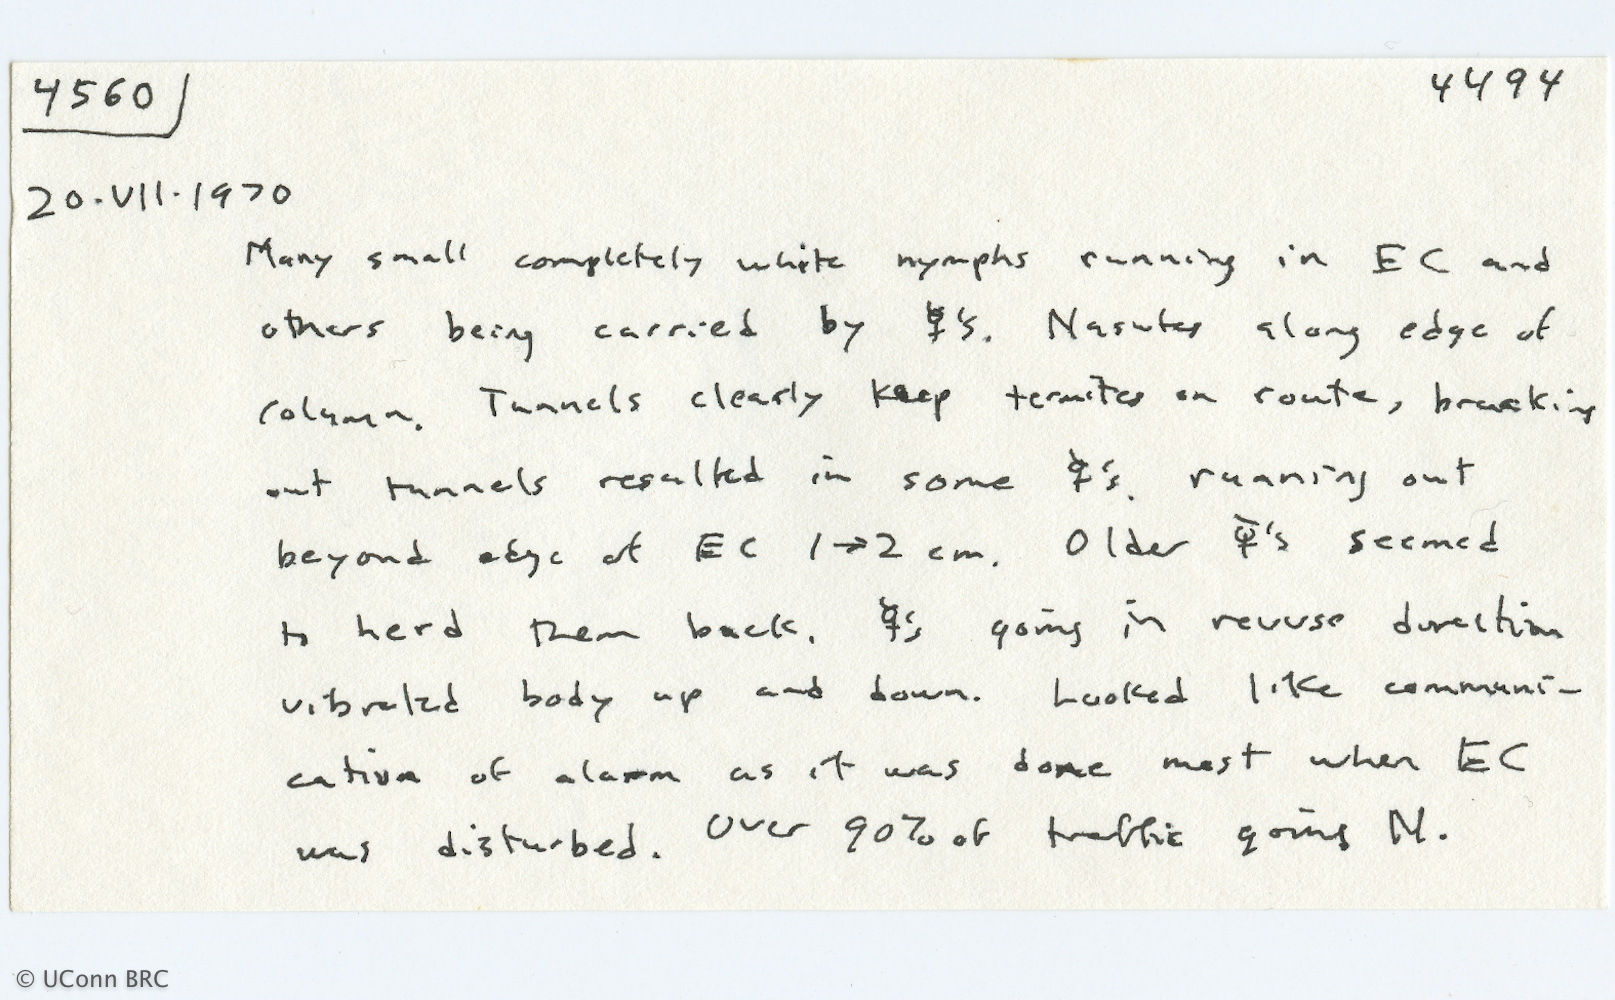 4560
4494
20.VII.1970
Many small completely white nymphs running in EC and
others being carried by ☿'s. Nasutes along edge of
column. Tunnels clearly keep termites on route, breaking
out tunnels resulted in some ☿'s. running out
beyond edge of EC 1→2 cm. Older ☿'s seemed
to herd them back. ☿'s going in reverse direction
vibrated body up and down. Looked like communi-
cation of alarm as it was done most when EC
was disturbed. Over 90% of traffic going N.
© UConn BRC